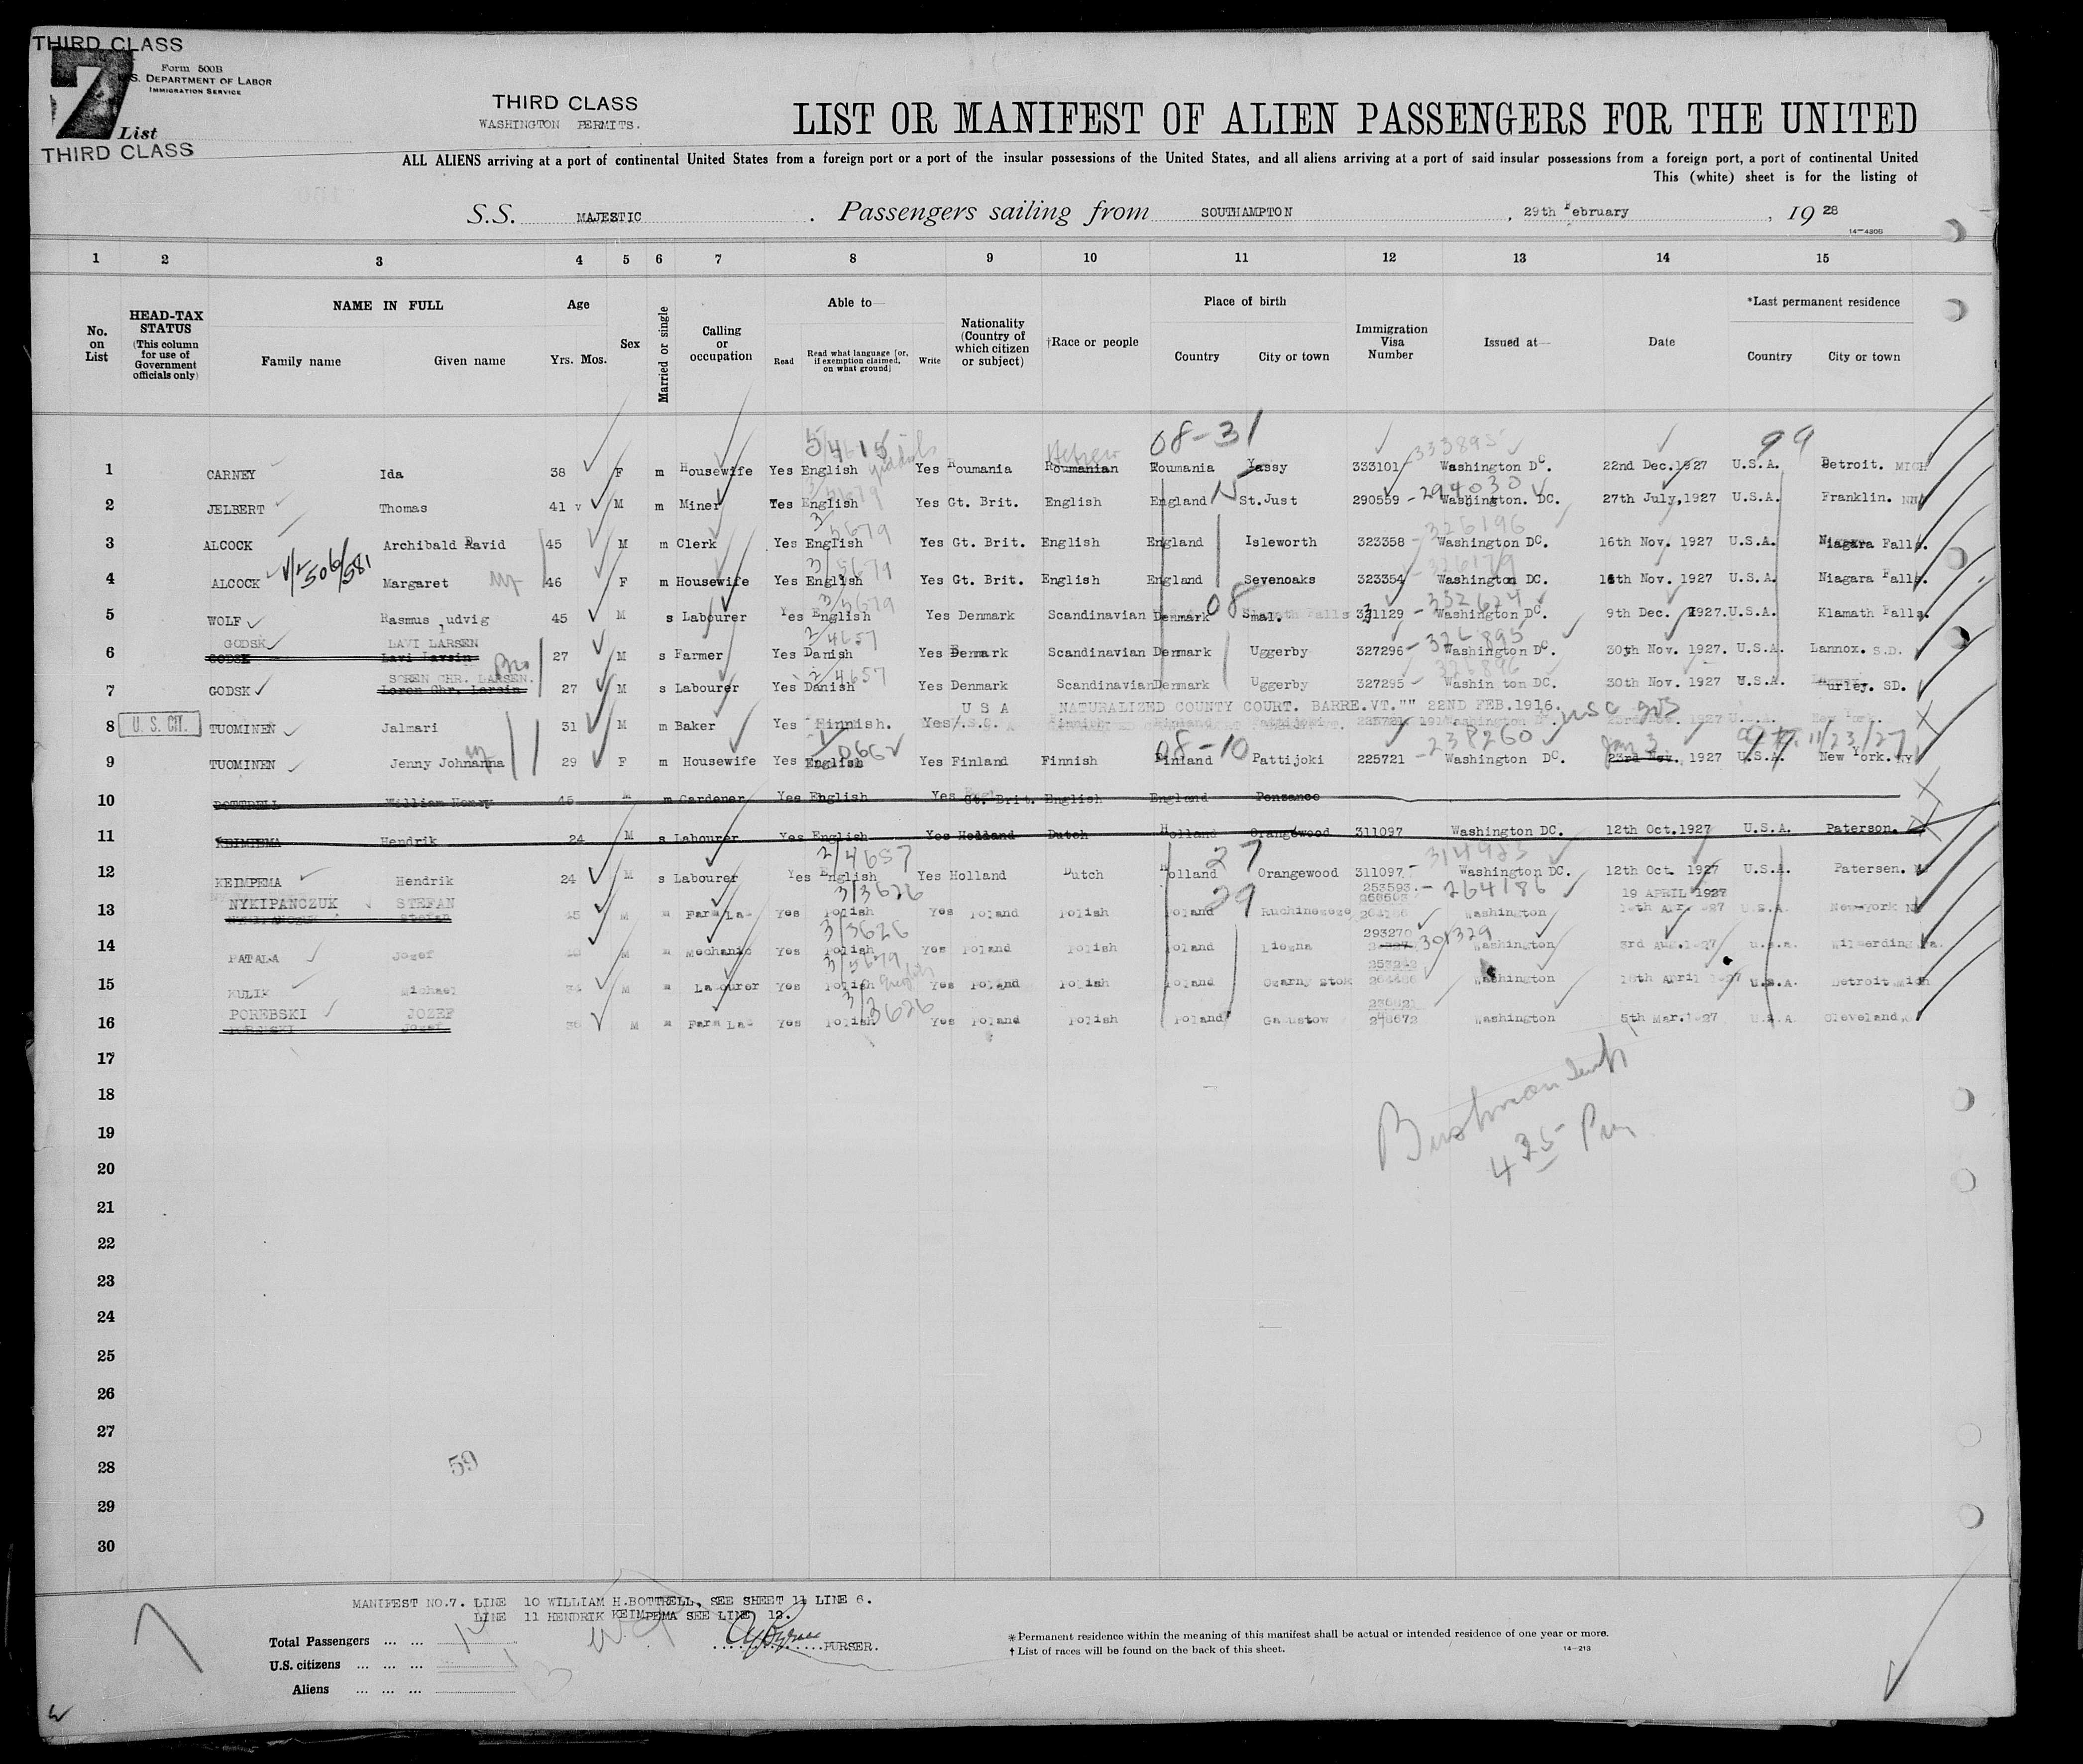 THIRD CLASS
Form 500B
S. DEPARTMENT OF LABOR
IMMIGRATION SERVICE
7
List
THIRD CLASS
THIRD CLASS
WASHINGTON PERMITS.
LIST OR MANIFEST OF ALIEN PASSENGERS FOR THE UNITED
ALL ALIENS arriving at a port of continental United States from a foreign port or a port of the insular possessions of the United States, and all aliens arriving at a port of said insular possessions from a foreign port, a port of continental United
This (white) sheet is for the listing of
S.S. MAJESTIC . Passengers sailing from SOUTHAMPTON , 29th February , 19 28
14—4306
1 2 3 4 5 6 7 8 9 10 11 12 13 14 15
No. on List
HEAD-TAX STATUS (This column for use of Government officials only)
NAME IN FULL
Family name Given name
Age
Yrs. Mos.
Sex
Married or single
Calling or occupation
Able to—
Read
Read what language [or, if exemption claimed, on what ground]
Write
Nationality (Country of which citizen or subject)
†Race or people
Place of birth
Country City or town
Immigration Visa Number
Issued at—
Date
*Last permanent residence
Country City or town
5/4615 08-31 333895 99
Hebrew
1 CARNEY Ida 38 F m Housewife Yes English Yiddish Yes Roumania Roumanian Roumania Yassy 333101 Washington DC. 22nd Dec.1927 U.S.A. Detroit. MICH
2 JELBERT Thomas 41 M m Miner Yes English Yes Gt. Brit. English England St.Just 290559 - 294030 Washington. DC. 27th July,1927 U.S.A. Franklin.
3/5679 326196
3 ALCOCK Archibald David 45 M m Clerk Yes English Yes Gt. Brit. English England Isleworth 323358 - Washington DC. 16th Nov. 1927 U.S.A. Niagara Falls.
V/2 506/581 3/5679 326179
4 ALCOCK Margaret 46 F m Housewife Yes English Yes Gt. Brit. English England Sevenoaks 323354 Washington DC. 16th Nov. 1927 U.S.A. Niagara Falls.
3/5679 08 332624
5 WOLF Rasmus Ludvig 45 M s Labourer Yes English Yes Denmark Scandinavian Denmark Smal. 321129 - Washington DC. 9th Dec. 1927. U.S.A. Klamath Falls.
GODSK LAVI LARSEN 2/4657 326895
6 GODSK Lavi Larsin 27 M s Farmer Yes Danish Yes Denmark Scandinavian Denmark Uggerby 327296 - Washington DC. 30th Nov. 1927. U.S.A. Lannox. S.D.
SOREN CHR. LARSEN. Bro 2/4657 326896
7 GODSK Loren Chr. Larsin 27 M s Labourer Yes Danish Yes Denmark Scandinavian Denmark Uggerby 327295 - Washin ton DC. 30th Nov. 1927 U.S.A. urley. SD.
U S A NATURALIZED COUNTY COURT. BARRE.VT."" 22ND FEB.1916.
8 U. S. CIT. TUOMINEN Jalmari 31 M m Baker Yes Finnish. Yes
08-10 238260 Jan 3 11/23/27
9 TUOMINEN Jenny Johnanna 29 F m Housewife Yes English Yes Finland Finnish Finland Pattijoki 225721 - Washington DC. 23rd Nov. 1927 U.S.A. New York. NY
10 BOTTRELL William Henry 45 M m Gardener Yes English Yes Gt. Brit. English England Penzance
11 KEIMPEMA Hendrik 24 M s Labourer Yes English Yes Holland Dutch Holland Orangewood 311097 Washington DC. 12th Oct.1927 U.S.A. Paterson.
2/4657 27 314983
12 KEIMPEMA Hendrik 24 M s Labourer Yes English Yes Holland Dutch Holland Orangewood 311097 - Washington DC. 12th Oct. 1927 U.S.A. Patersen.
NYKIPANCZUK STEFAN 3/3626 29 253593. - 264186 19 APRIL 1927
13 Stefan 45 M m Farm La Yes Polish Yes Poland Polish Poland Washington U.S.A. New York
3/3626 293270 301329
14 PATALA Jozef M m Mechanic Yes Polish Yes Poland Polish Poland Washington 3rd Aug.1927 U.S.A. Wilmerding Pa.
3/5679
15 KULIK Michael 34 M m Labourer Yes Polish Yes Poland Polish Poland Czarny Stok Washington 18th April 1927 U.S.A. Detroit Mich
POREBSKI JOZEF 3/3626
16 Jozef 36 M m Farm Lab Yes Polish Yes Poland Polish Poland 248672 Washington 5th Mar.1927 U.S.A. Cleveland,O
17
18
19
4 25 Pm
20
21
22
23
24
25
26
27
28
59
29
30
MANIFEST NO.7. LINE 10 WILLIAM H.BOTTRELL, SEE SHEET 11 LINE 6.
LINE 11 HENDRIK KEIMPEMA SEE LINE 12.
Total Passengers ... ... 14
PURSER.
U.S. citizens ... ... ... 1
Aliens ... ... ... 13
*Permanent residence within the meaning of this manifest shall be actual or intended residence of one year or more.
† List of races will be found on the back of this sheet.
14—213